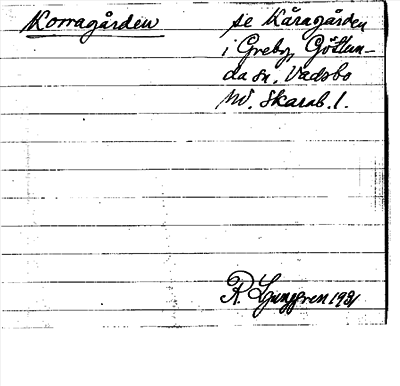 Korragården
se Kåragården
i Greby, Götlun-
da sn. Vadsbo
hd. Skarab. l.
R. Ljunggren 1931